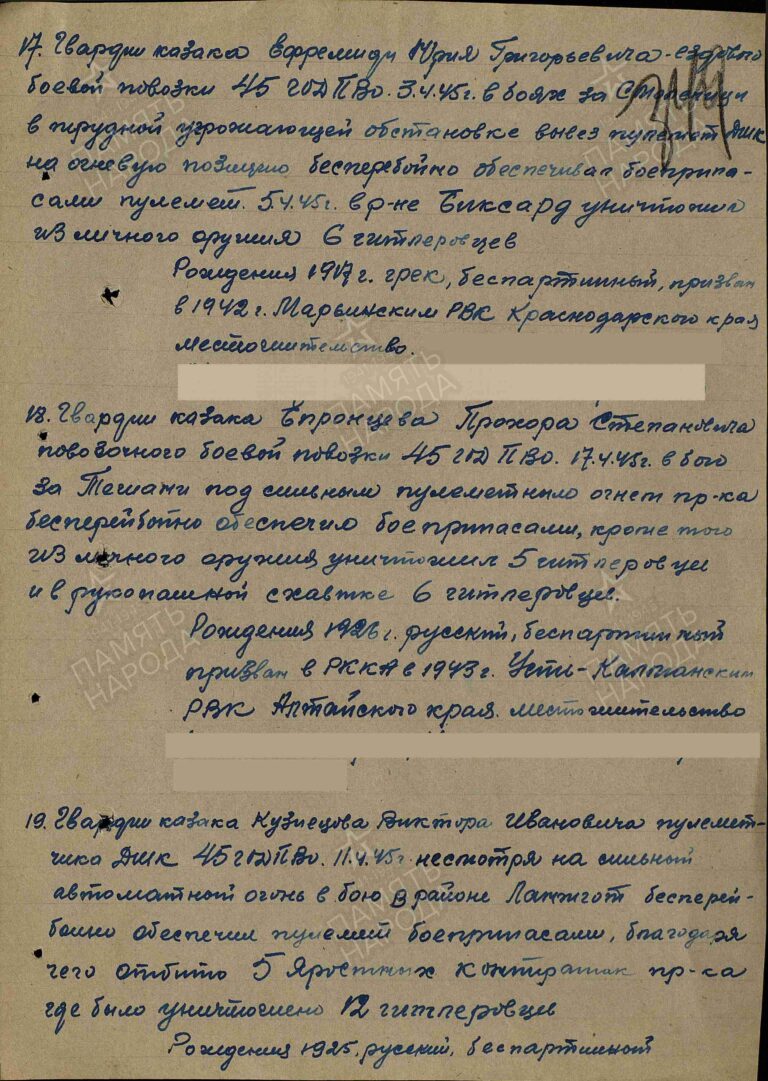 17. Гвардии казака Ефремиди Юрия Григорьевича - ездового
боевой повозки 45 гОД ПВО. 3.4.45г. в боях за
в трудной угрожающей обстановке вывез пулемет ДШК
на огневую позицию бесперебойно обеспечивал боеприпа-
сами пулемет. 5.4.45г. в р-не Биксард уничтожил
из личного оружия 6 гитлеровцев
Рождения 1917 г. грек, беспартийный, призван
в 1942 г. Марьинским РВК Краснодарского края
местожительство.
18. Гвардии казака Епронцева Прохора Степановича
повозочного боевой повозки 45 гОД ПВО. 17.4.45г. в бою
за под сильным пулеметным огнем пр-ка
бесперебойно обеспечило боеприпасами, кроме того
из личного оружия уничтожил 5 гитлеровцев
и в рукопашной схватке 6 гитлеровцев.
Рождения 1926 г. русский, беспартийный
призван в РККА в 1943 г. Усть-Калманским
РВК Алтайского края. местожительство
19. Гвардии казака Кузнецова Виктора Ивановича пулемет-
чика ДШК 45 гОД ПВО. 11.4.45г. несмотря на сильный
автоматный огонь в бою в районе Ланжгот беспереб-
бойно обеспечил пулемет боеприпасами, благодаря
чего отбито 5 яростных контратак пр-ка
где было уничтожено 12 гитлеровцев
Рождения 1925, русский, беспартийный
ПАМЯТЬ
НАРОДА